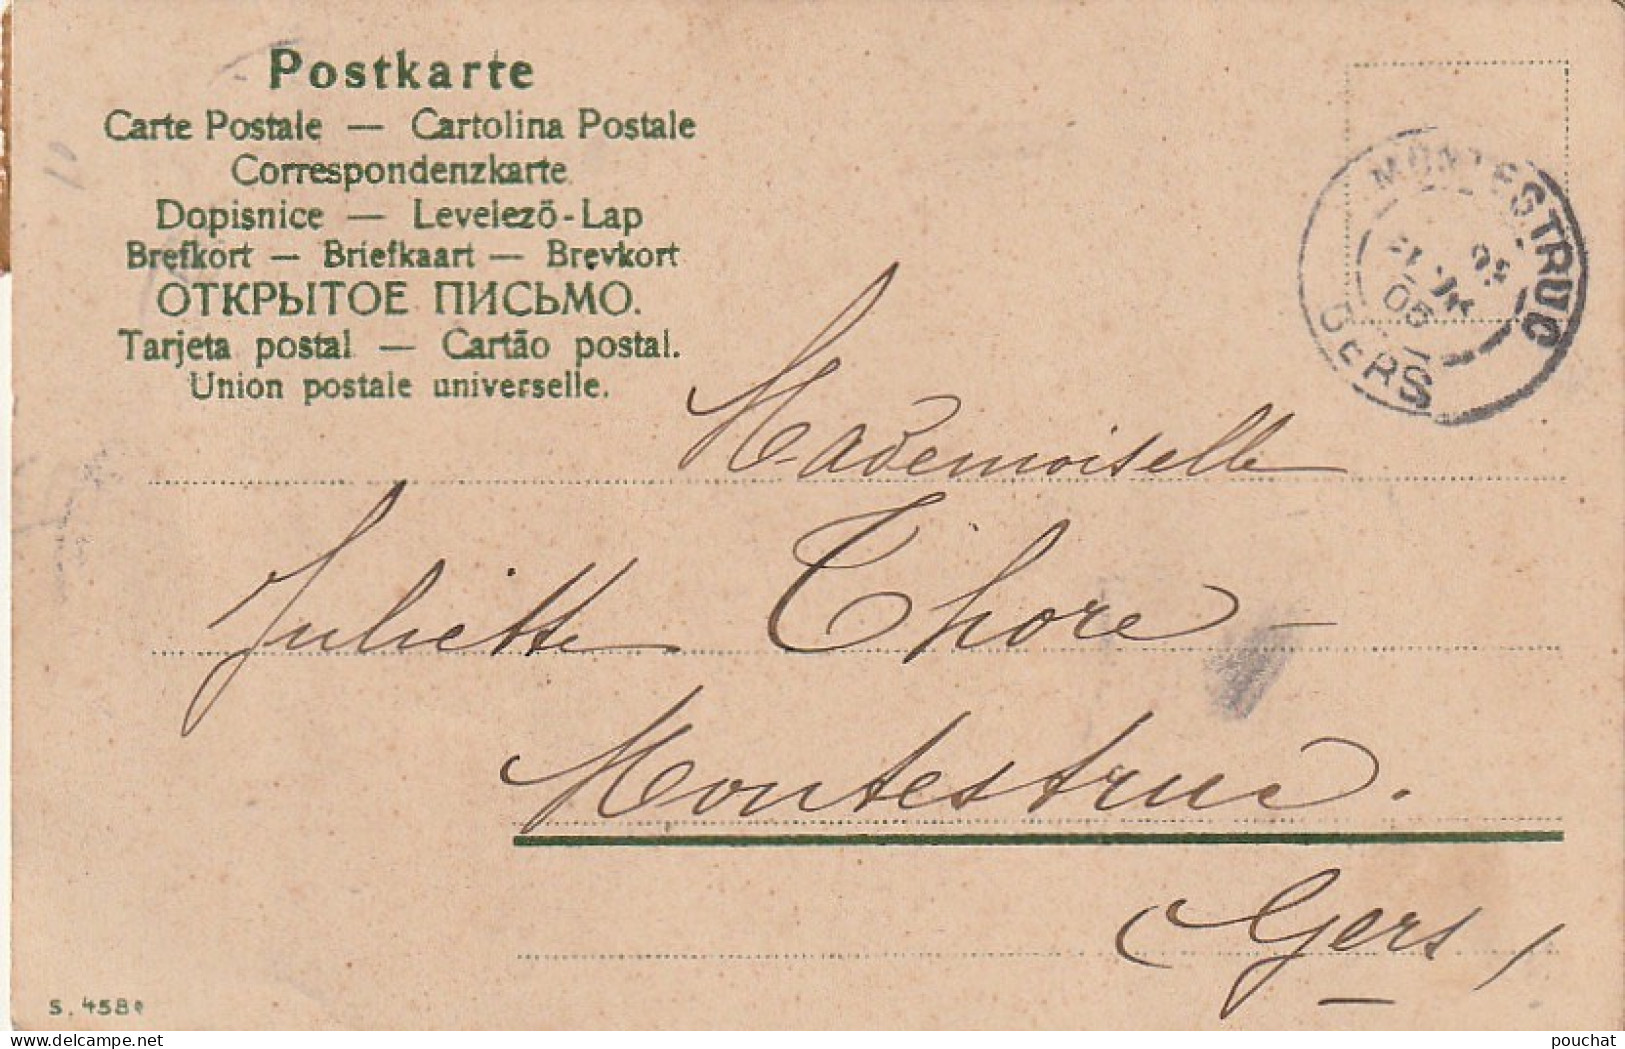 Postkarte
Carte Postale — Cartolina Postale
Correspondenzkarte
Dopisnice — Levelező-Lap
Brefkort — Briefkaart — Brevkort
ОТКРЫТОЕ ПИСЬМО.
Tarjeta postal — Cartão postal.
Union postale universelle.
MONTESTRUC
05
GERS
Mademoiselle
Juliette Thore
Montestruc.
(Gers)
S. 458
pouchat